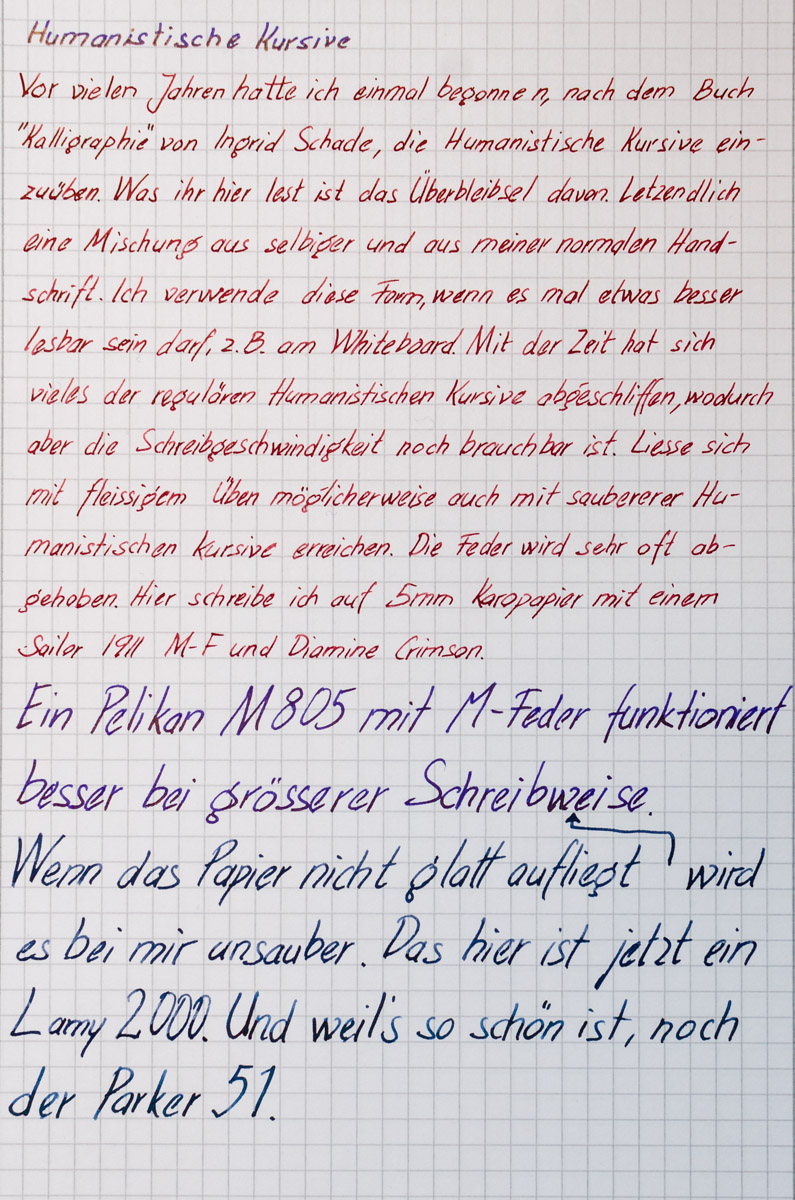 Humanistische Kursive
Vor vielen Jahren hatte ich einmal begonnen, nach dem Buch
"Kalligraphie" von Ingrid Schade, die Humanistische Kursive ein-
zuüben. Was ihr hier lest ist das Überbleibsel davon. Letzendlich
eine Mischung aus selbiger und aus meiner normalen Hand-
schrift. Ich verwende diese Form, wenn es mal etwas besser
lesbar sein darf, z.B. am Whiteboard. Mit der Zeit hat sich
vieles der regulären Humanistischen Kursive abgeschliffen, wodurch
aber die Schreibgeschwindigkeit noch brauchbar ist. Liesse sich
mit fleissigem Üben möglicherweise auch mit saubererer Hu-
manistischen Kursive erreichen. Die Feder wird sehr oft ab-
gehoben. Hier schreibe ich auf 5mm Karopapier mit einem
Sailor 1911 M-F und Diamine Crimson.
Ein Pelikan M805 mit M-Feder funktioniert
besser bei grösserer Schreibweise.
Wenn das Papier nicht glatt aufliegt wird
es bei mir unsauber. Das hier ist jetzt ein
Lamy 2000. Und weil's so schön ist, noch
der Parker 51.